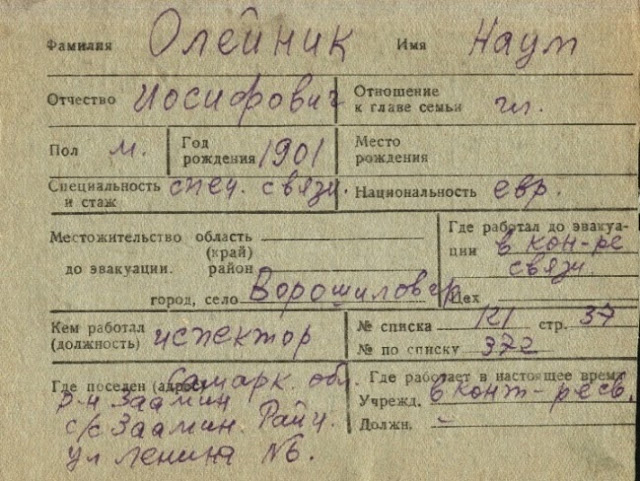 Фамилия Олейник Имя Наум
Отчество Иосифович Отношение к главе семьи гл.
Пол м. Год рождения 1901 Место рождения
Специальность и стаж спец. связи. Национальность евр.
Местожительство область
(край)
до эвакуации. район
город, село Ворошиловгр.
Где работал до эвакуации в кон-ре связи.
Цех
Кем работал (должность) испектор
№ списка 121 стр. 37
№ по списку 372
Где поселен (адрес) Самарк. обл.
р-н Заамин
с/с Заамин. Райц.
ул Ленина №6.
Где работает в настоящее время
Учрежд. в конт-ре св.
Должн. –